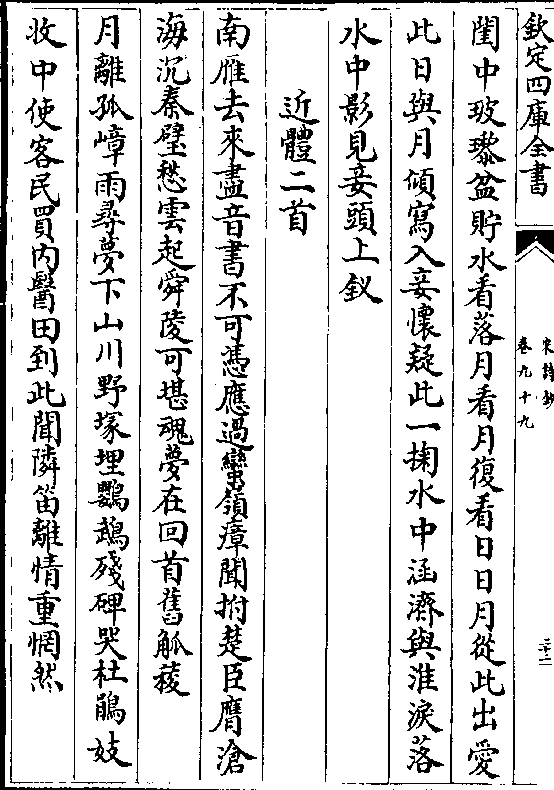 欽定四庫全書
宋詩鈔
卷九十九
三十二
閨中玻瓈盆貯水看落月看月復看日日月從此出愛
此日與月傾寫入妾懷疑此一掬水中涵濟與淮淚落
水中影見妾頭上釵
近體二首
南雁去來盡音書不可憑應過蠻領瘴聞拊楚臣膺滄
海沉秦璧愁雲起舜陵可堪魂夢在回首舊觚稜
月離孤嶂雨尋夢下山川野塚埋鸚鵡殘碑哭杜鵑妓
收中使客民買内醫田到此聞隣笛離情重惘然